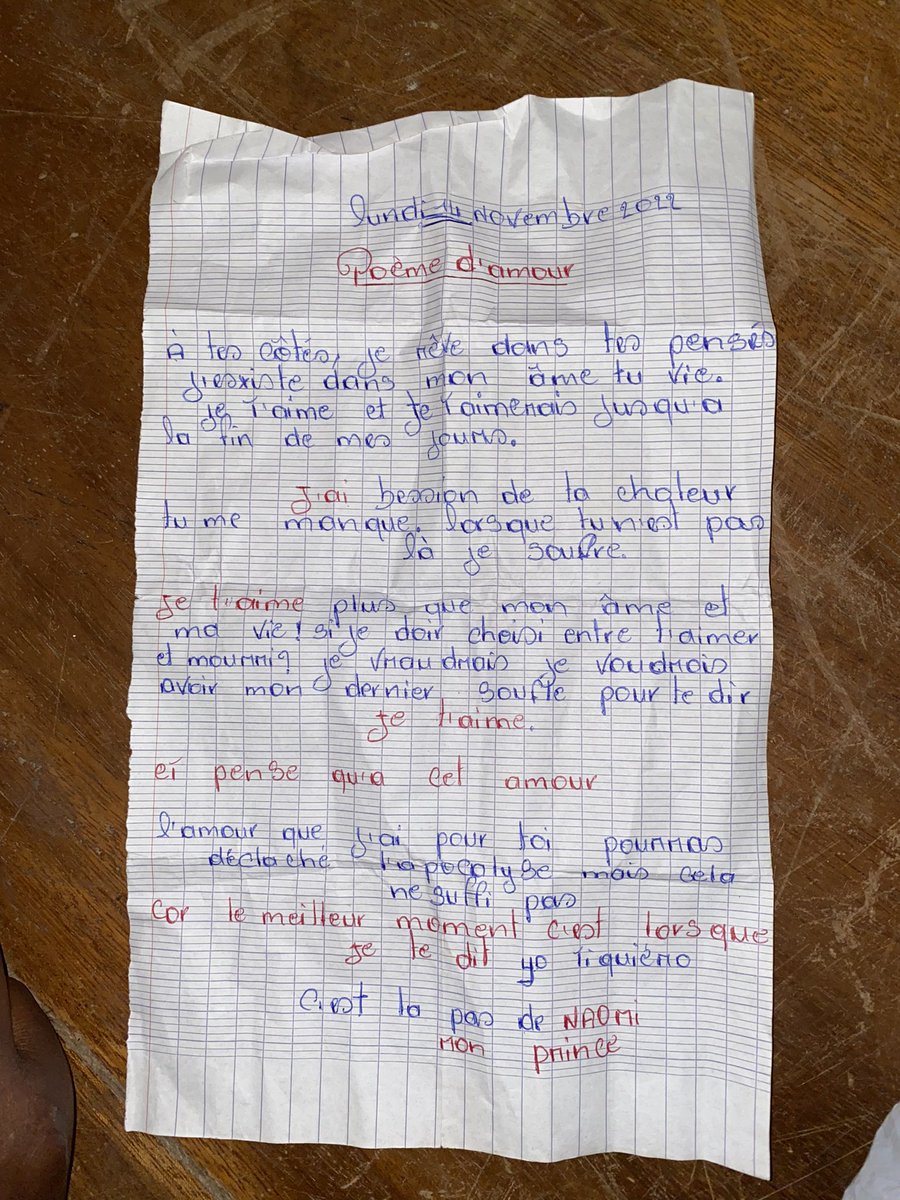 lundi 14 Novembre 2022
Poème d'amour
À tes côtés, je rêve dans tes pensés
j'existe dans mon âme tu vie.
je t'aime et je t'aimerais jusqu'a
la fin de mes jours.
J'ai bession de ta chaleur
tu me manque. lorsque tu n'est pas
là je soufre.
je t'aime plus que mon âme et
ma vie! si je doir choisi entre t'aimer
et mourri? je vraudrais je voudrais
avoir mon dernier soufle pour te dir
je t'aime.
ei pense qu'a cet amour
l'amour que j'ai pour toi pourras
déclaché l'apocalyse mais cela
ne suffi pas
car le meilleur moment c'est lorsque
je te dit yo tiquiéro
c'est la pas de NAOMI
mon prince